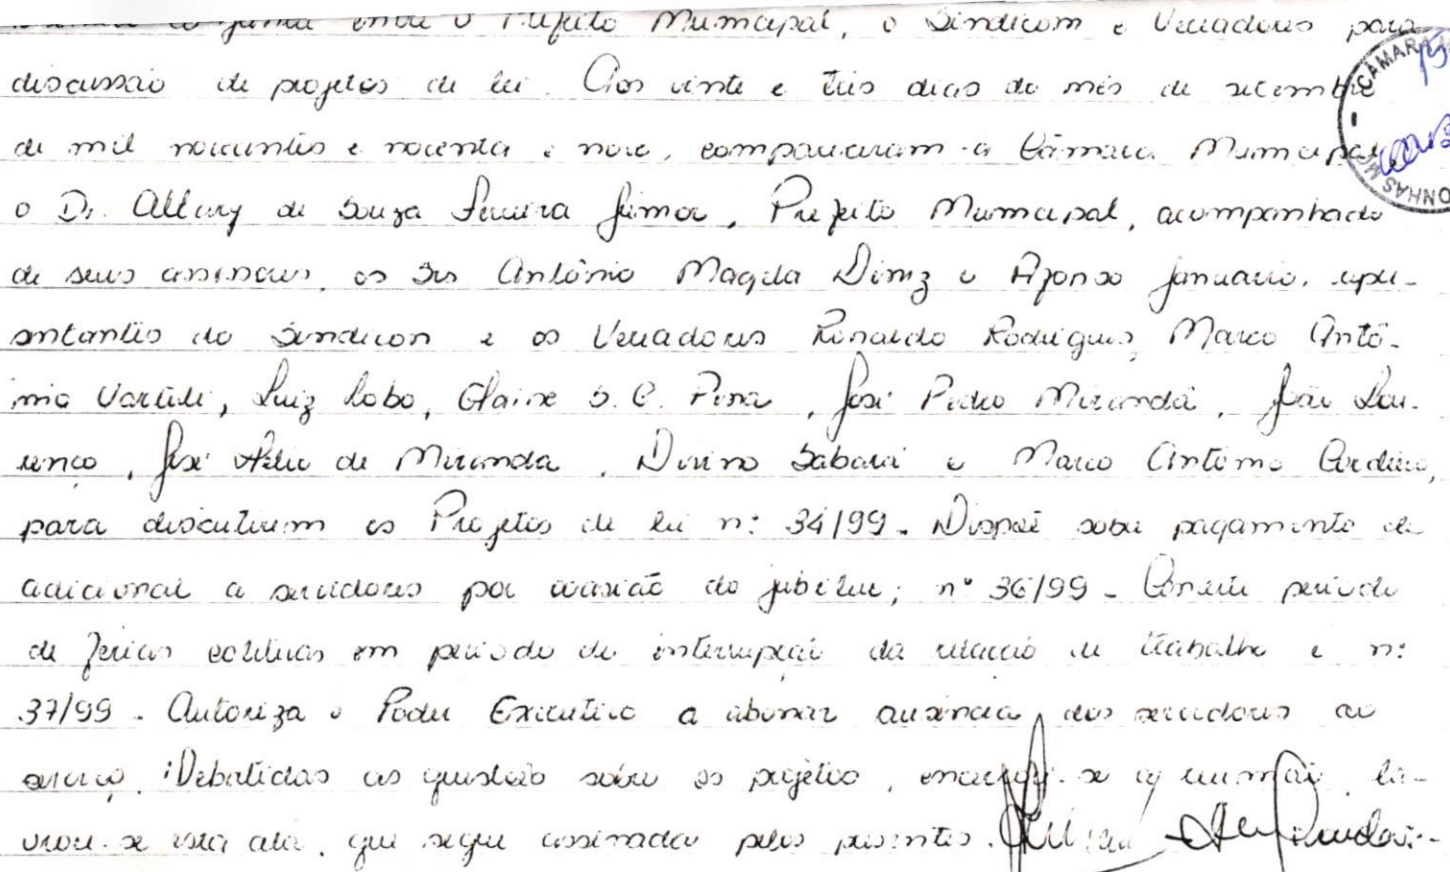 conjunta entre o Prefeito Municipal, o Sindicom e Vereadores para
discussão de projetos de lei. Aos vinte e três dias do mês de setembro
de mil novecentos e noventa e nove, compareceram à Câmara Municipal,
o Dr. Altary de Souza Ferreira Júnior, Prefeito Municipal, acompanhado
de seus assessores, os Srs Antônio Magela Diniz e Afonso Januário, repre-
sentantes do Sindicon e os Vereadores Ronaldo Rodrigues, Marco Antô-
nio Vartuli, Luiz Lobo, Elaine S. C. Pena, José Pedro Miranda, João Lou-
renço, José Hélio de Miranda, Divino Sabará e Marco Antônio Cordeiro,
para discutirem os Projetos de lei nº: 34/99 - Dispõe sobre pagamento de
adicional a servidores por ocasião do jubileu; nº 36/99 - Converte período
de férias coletivas em período de interrupção da relação de trabalho e nº:
37/99 - Autoriza o Poder Executivo a abonar ausência dos servidores ao
serviço. Debatidas as questões sobre os projetos, encerrou-se a reunião, la-
vrou-se esta ata, que segue assinada pelos presentes.
CÂMARA